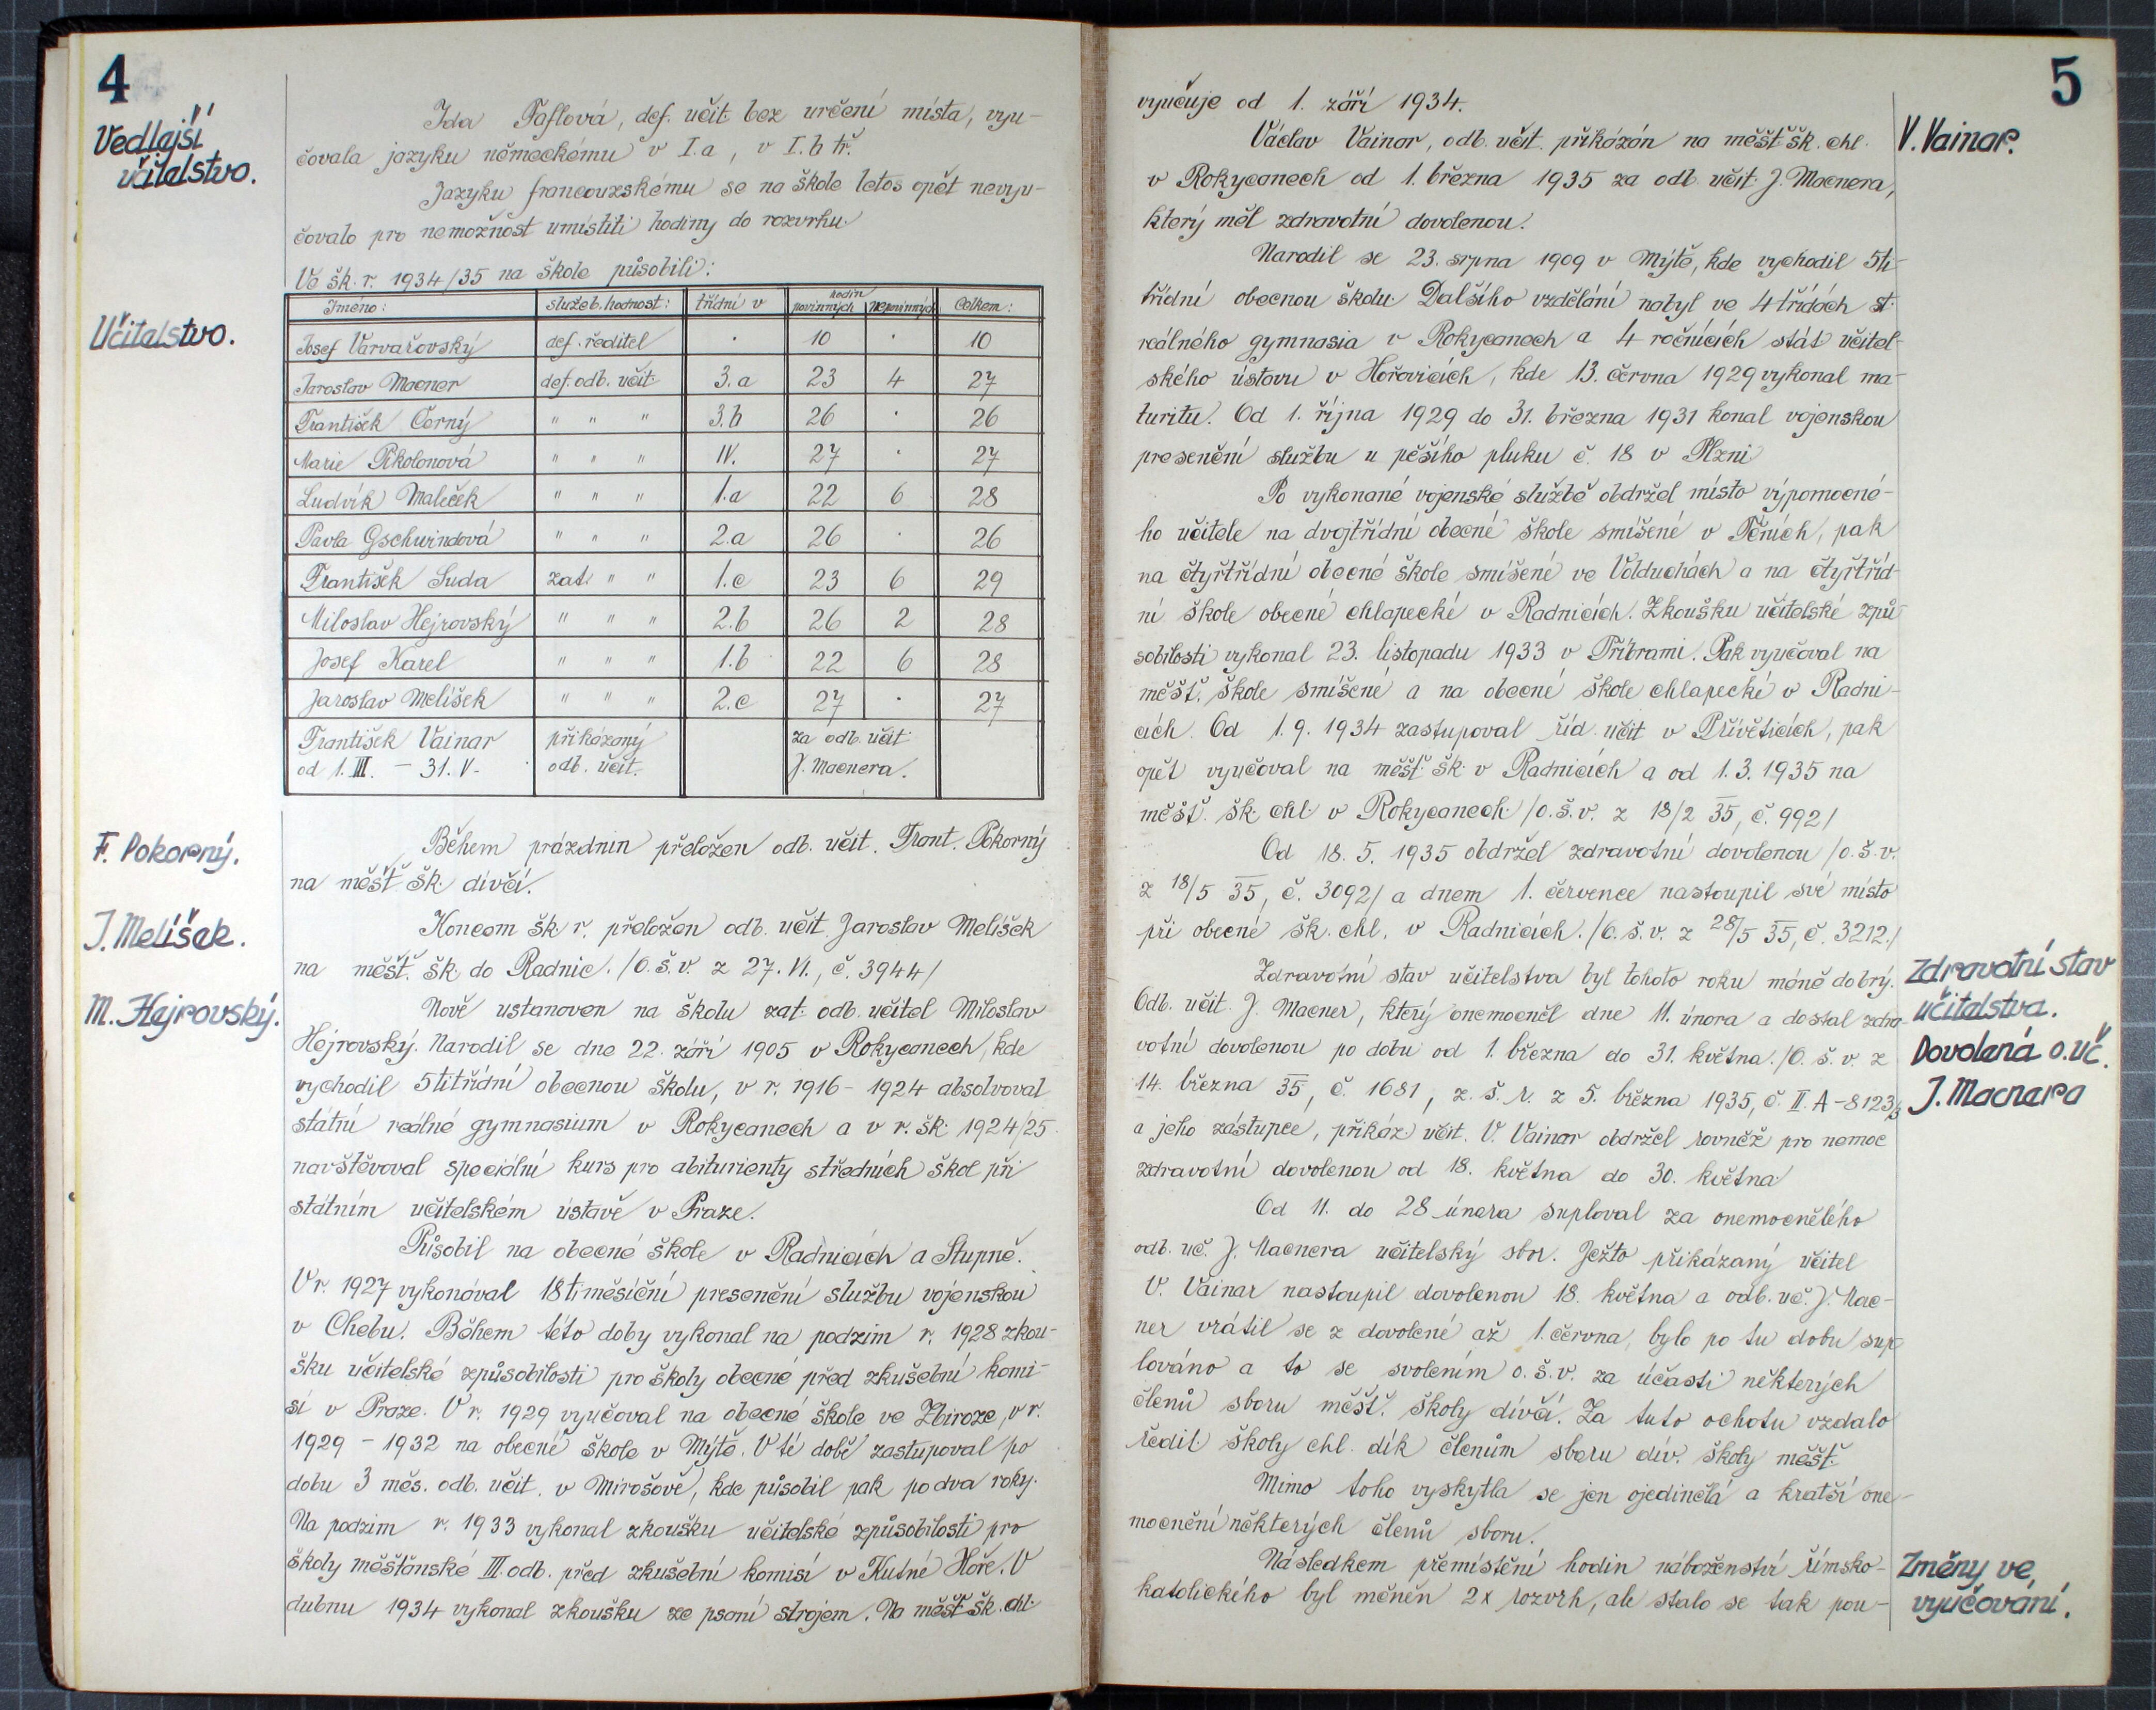 4
Vedlejší
učitelstvo.
Ida Taflová, def. učit. bez určení místa, vyu-
čovala jazyku německému v I.a, v I.b tř.
Jazyku francouzskému se na škole letos opět nevyu-
čovalo pro nemožnost umístiti hodiny do rozvrhu.
Učitelstvo.
Ve šk. r. 1934/35 na škole působili:
Jméno: služeb. hodnost: třídní v hodin povinných nepovinných Celkem:
Josef Varvařovský def. ředitel . 10 . 10
Jaroslav Macner def. odb. učit. 3.a 23 4 27
František Černý " " " 3.b 26 . 26
Marie Pikolonová " " " IV. 27 . 27
Ludvík Maleček " " " 1.a 22 6 28
Pavla Gschwindová " " " 2.a 26 . 26
František Suda zat. " " 1.c 23 6 29
Miloslav Hejrovský " " " 2.b 26 2 28
Josef Karel " " " 1.b 22 6 28
Jaroslav Melíšek " " " 2.c 27 . 27
František Vainar přikázaný za odb. učit.
od 1. III. – 31. V. odb. učit. J. Macnera.
F. Pokorný.
Během prázdnin přeložen odb. učit. Frant. Pokorný
na měšť. šk. dívčí.
J. Melíšek.
Koncem šk. r. přeložen odb. učit. Jaroslav Melíšek
na měšť. šk. do Radnic. /O.š.v. z 27. VI., č. 3944/
M. Hejrovský.
Nově ustanoven na školu zat. odb. učitel Miloslav
Hejrovský. Narodil se dne 22. září 1905 v Rokycanech, kde
vychodil 5titřídní obecnou školu, v r. 1916 – 1924 absolvoval
státní reálné gymnasium v Rokycanech a v r. šk. 1924/25
navštěvoval speciální kurs pro abiturienty středních škol při
státním učitelském ústavě v Praze.
Působil na obecné škole v Radnicích a Stupně.
V r. 1927 vykonával 18timěsíční presenční službu vojenskou
v Chebu. Během této doby vykonal na podzim r. 1928 zkou-
šku učitelské způsobilosti pro školy obecné před zkušební komi-
sí v Praze. V r. 1929 vyučoval na obecné škole ve Zbiroze, v r.
1929 – 1932 na obecné škole v Mýtě. V té době zastupoval po
dobu 3 měs. odb. učit. v Mirošově, kde působil pak po dva roky.
Na podzim r. 1933 vykonal zkoušku učitelské způsobilosti pro
školy měšťanské III. odb. před zkušební komisí v Kutné Hoře. V
dubnu 1934 vykonal zkoušku ze psaní strojem. Na měšť. šk. chl.
5
vyučuje od 1. září 1934.
V. Vainar.
Václav Vainar, odb. učit. přikázán na měšť. šk. chl.
v Rokycanech od 1. března 1935 za odb. učit. J. Macnera,
který měl zdravotní dovolenou.
Narodil se 23. srpna 1909 v Mýtě, kde vychodil 5ti-
třídní obecnou školu. Dalšího vzdělání nabyl ve 4 třídách st.
reálného gymnasia v Rokycanech a 4 ročnících stát. učitel-
ského ústavu v Hořovicích, kde 13. června 1929 vykonal ma-
turitu. Od 1. října 1929 do 31. března 1931 konal vojenskou
presenční službu u pěšího pluku č. 18 v Plzni.
Po vykonané vojenské službě obdržel místo výpomocné-
ho učitele na dvojtřídní obecné škole smíšené v Těních, pak
na čtyřtřídní obecné škole smíšené ve Volduchách a na čtyřtříd-
ní škole obecné chlapecké v Radnicích. Zkoušku učitelské způ-
sobilosti vykonal 23. listopadu 1933 v Příbrami. Pak vyučoval na
měšť. škole smíšené a na obecné škole chlapecké v Radni-
cích. Od 1. 9. 1934 zastupoval říd. učit. v Přívěticích, pak
opět vyučoval na měšť. šk. v Radnicích a od 1. 3. 1935 na
měšť. šk. chl. v Rokycanech. /o.š.v. z 18/2 35, č. 992/
Od 18. 5. 1935 obdržel zdravotní dovolenou /o.š.v.
z 18/5 35, č. 3092/ a dnem 1. července nastoupil své místo
při obecné šk. chl. v Radnicích. /O.š.v. z 28/5 35, č. 3212./
Zdravotní stav
učitelstva.
Zdravotní stav učitelstva byl tohoto roku méně dobrý.
Odb. učit. J. Macner, který onemocněl dne 11. února a dostal zdra-
Dovolená o. uč.
J. Macnera
votní dovolenou po dobu od 1. března do 31. května. /O. š. v. z
14. března 35, č. 1681, z. š. r. z 5. března 1935, č. II. A – 8123/
a jeho zástupce, přikáz. učit. V. Vainar obdržel rovněž pro nemoc
zdravotní dovolenou od 18. května do 30. května.
Od 11. do 28. února suploval za onemocnělého
odb. uč. J. Macnera učitelský sbor. Ježto přikázaný učitel
V. Vainar nastoupil dovolenou 18. května a odb. uč. J. Mac-
ner vrátil se z dovolené až 1. června, bylo po tu dobu sup-
lováno a to se svolením o.š.v. za účasti některých
členů sboru měšť. školy dívčí. Za tuto ochotu vzdalo
ředit. školy chl. dík členům sboru dív. školy měšť.
Mimo toho vyskytla se jen ojedinělá a kratší one-
mocnění některých členů sboru.
Změny ve
vyučování.
Následkem přemístění hodin náboženství římsko-
katolického byl měněn 2x rozvrh, ale stalo se tak pou-